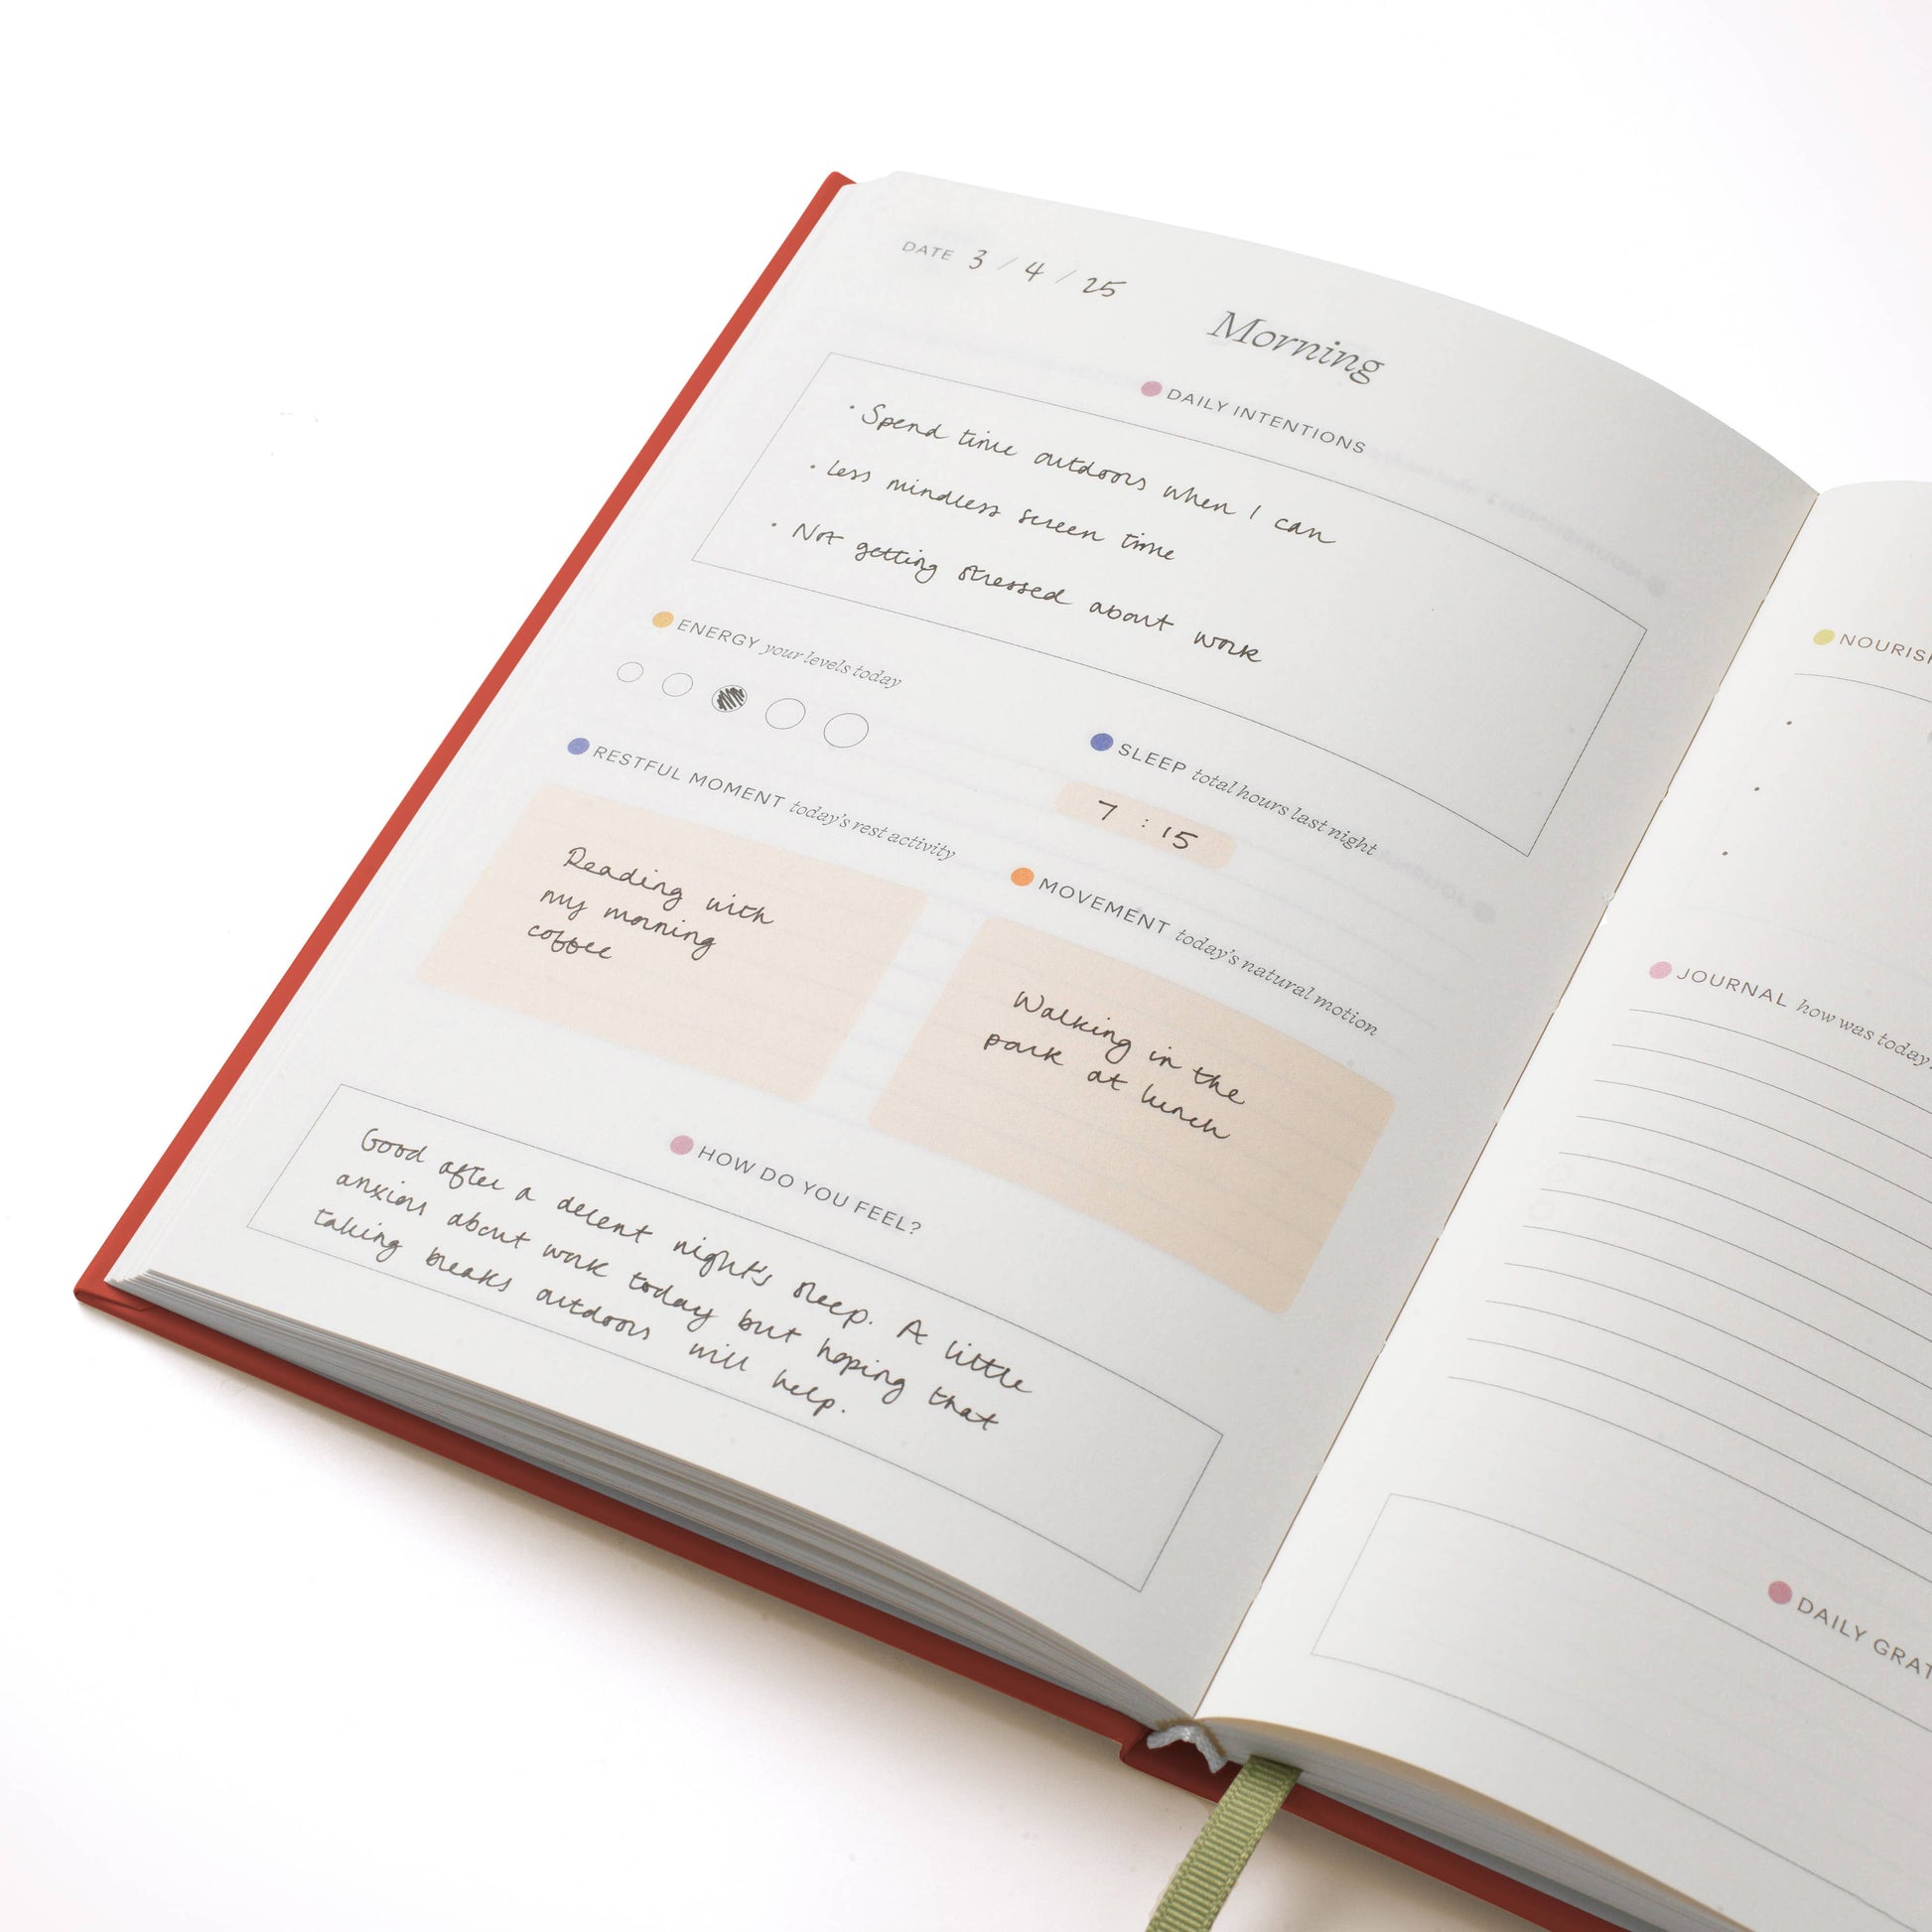 DATE 3 / 4 / 25
Morning
DAILY INTENTIONS
· Spend time outdoors when I can
· Less mindless screen time
· Not getting stressed about work
ENERGY your levels today
SLEEP total hours last night
7 : 15
RESTFUL MOMENT today's rest activity
Reading with
my morning
coffee
MOVEMENT today's natural motion
Walking in the
park at lunch
HOW DO YOU FEEL?
Good after a decent night's sleep. A little
anxious about work today but hoping that
taking breaks outdoors will help.
NOURISH
JOURNAL how was today?
DAILY GRAT